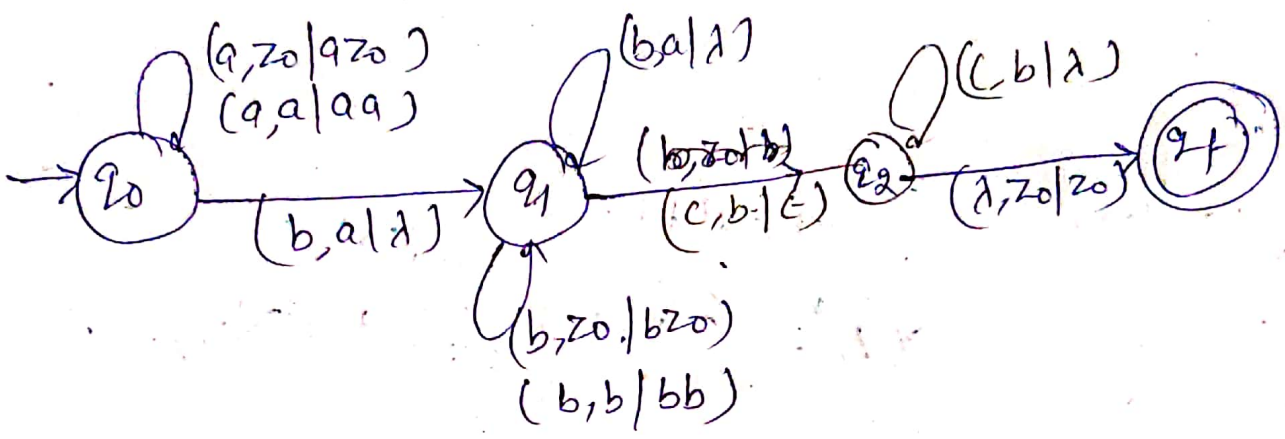 (a,z0|az0)
(a,a|aa)
(b,a|λ)
(c,b|λ)
q0
(b,a|λ)
q1
(c,b|ε)
q2
(λ,z0|z0)
qf
(b,z0|bz0)
(b,b|bb)